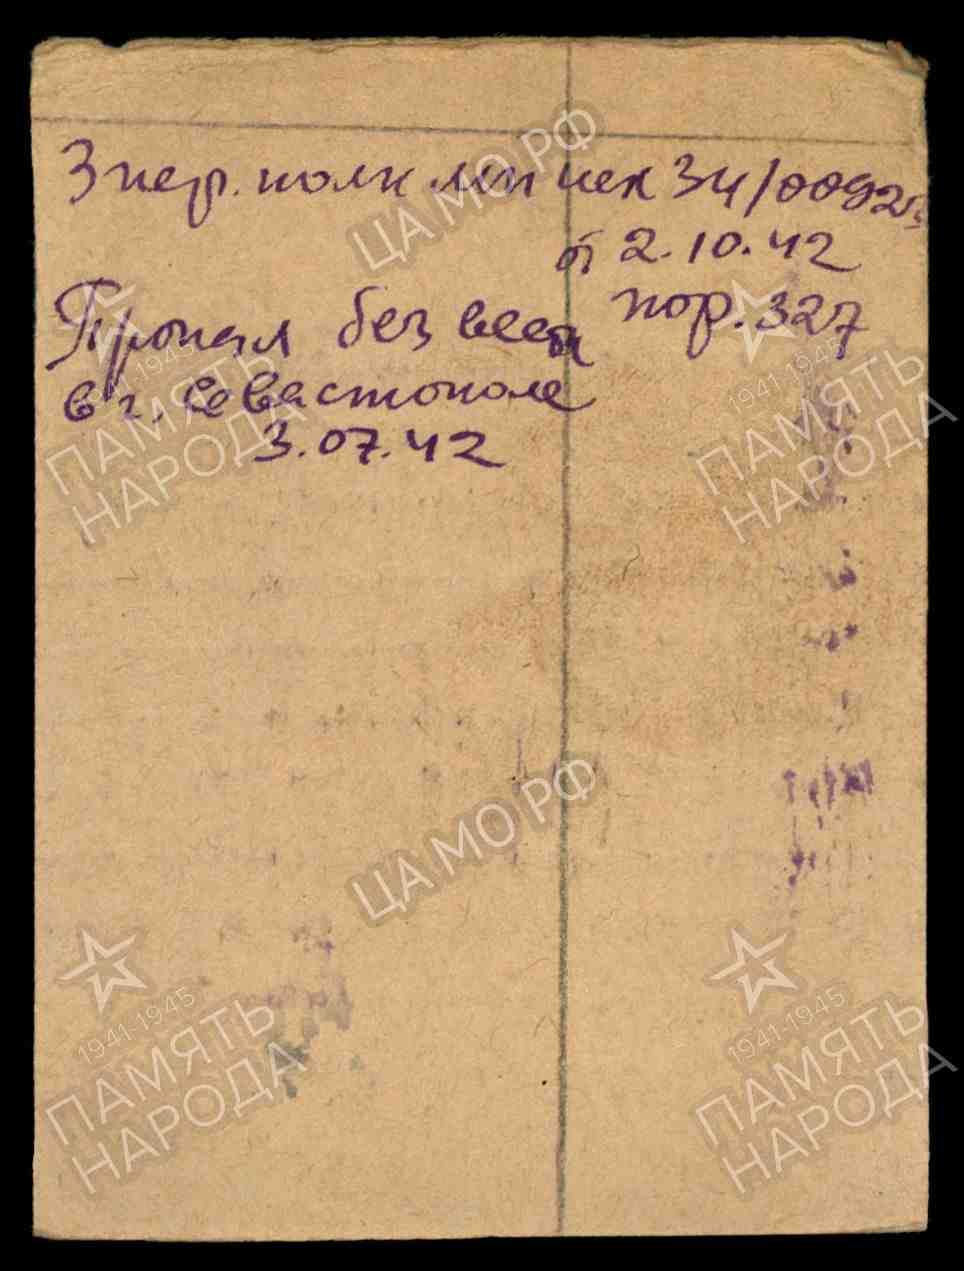 3 пер. полк мп исх 34/0092
от 2.10.42
Пропал без вести пор. 327
в г. Севастополе
3.07.42
ЦА МО РФ
1941-1945
ПАМЯТЬ
НАРОДА
1941-1945
ПАМЯТЬ
НАРОДА
ЦА МО РФ
1941-1945
ПАМЯТЬ
НАРОДА
1941-1945
ПАМЯТЬ
НАРОДА